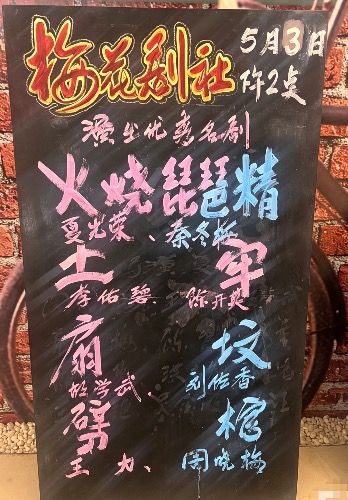 梅花剧社
5月3日
午2点
演出优秀名剧
火烧琵琶精
夏光荣、秦冬梅
土 牢
李佑碧 陈开英
扇 坟
胡学武、刘佑香
劈 棺
王力、周晓梅